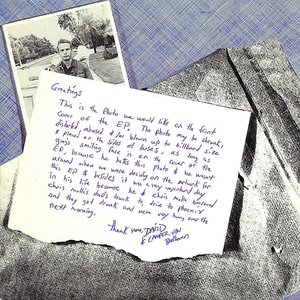 Greetings
This is the Photo we would like on the front
cover of the EP. The photo may be shrunk,
distorted, abused &/or blown up to billboard size
& placed on the sides of buses as long as
guys smiling face is on the cover of the
EP, because he hates this photo & he wasn't
around when we were deciding on the artwork for
this EP & besides it was a very important day
in his life because he & chris molla
chris molla's dad's truck to drive to phoenix
and they got drunk and were very hung over the
next morning.
Thank you, DAVID
& CAMPER VAN
Beethoven